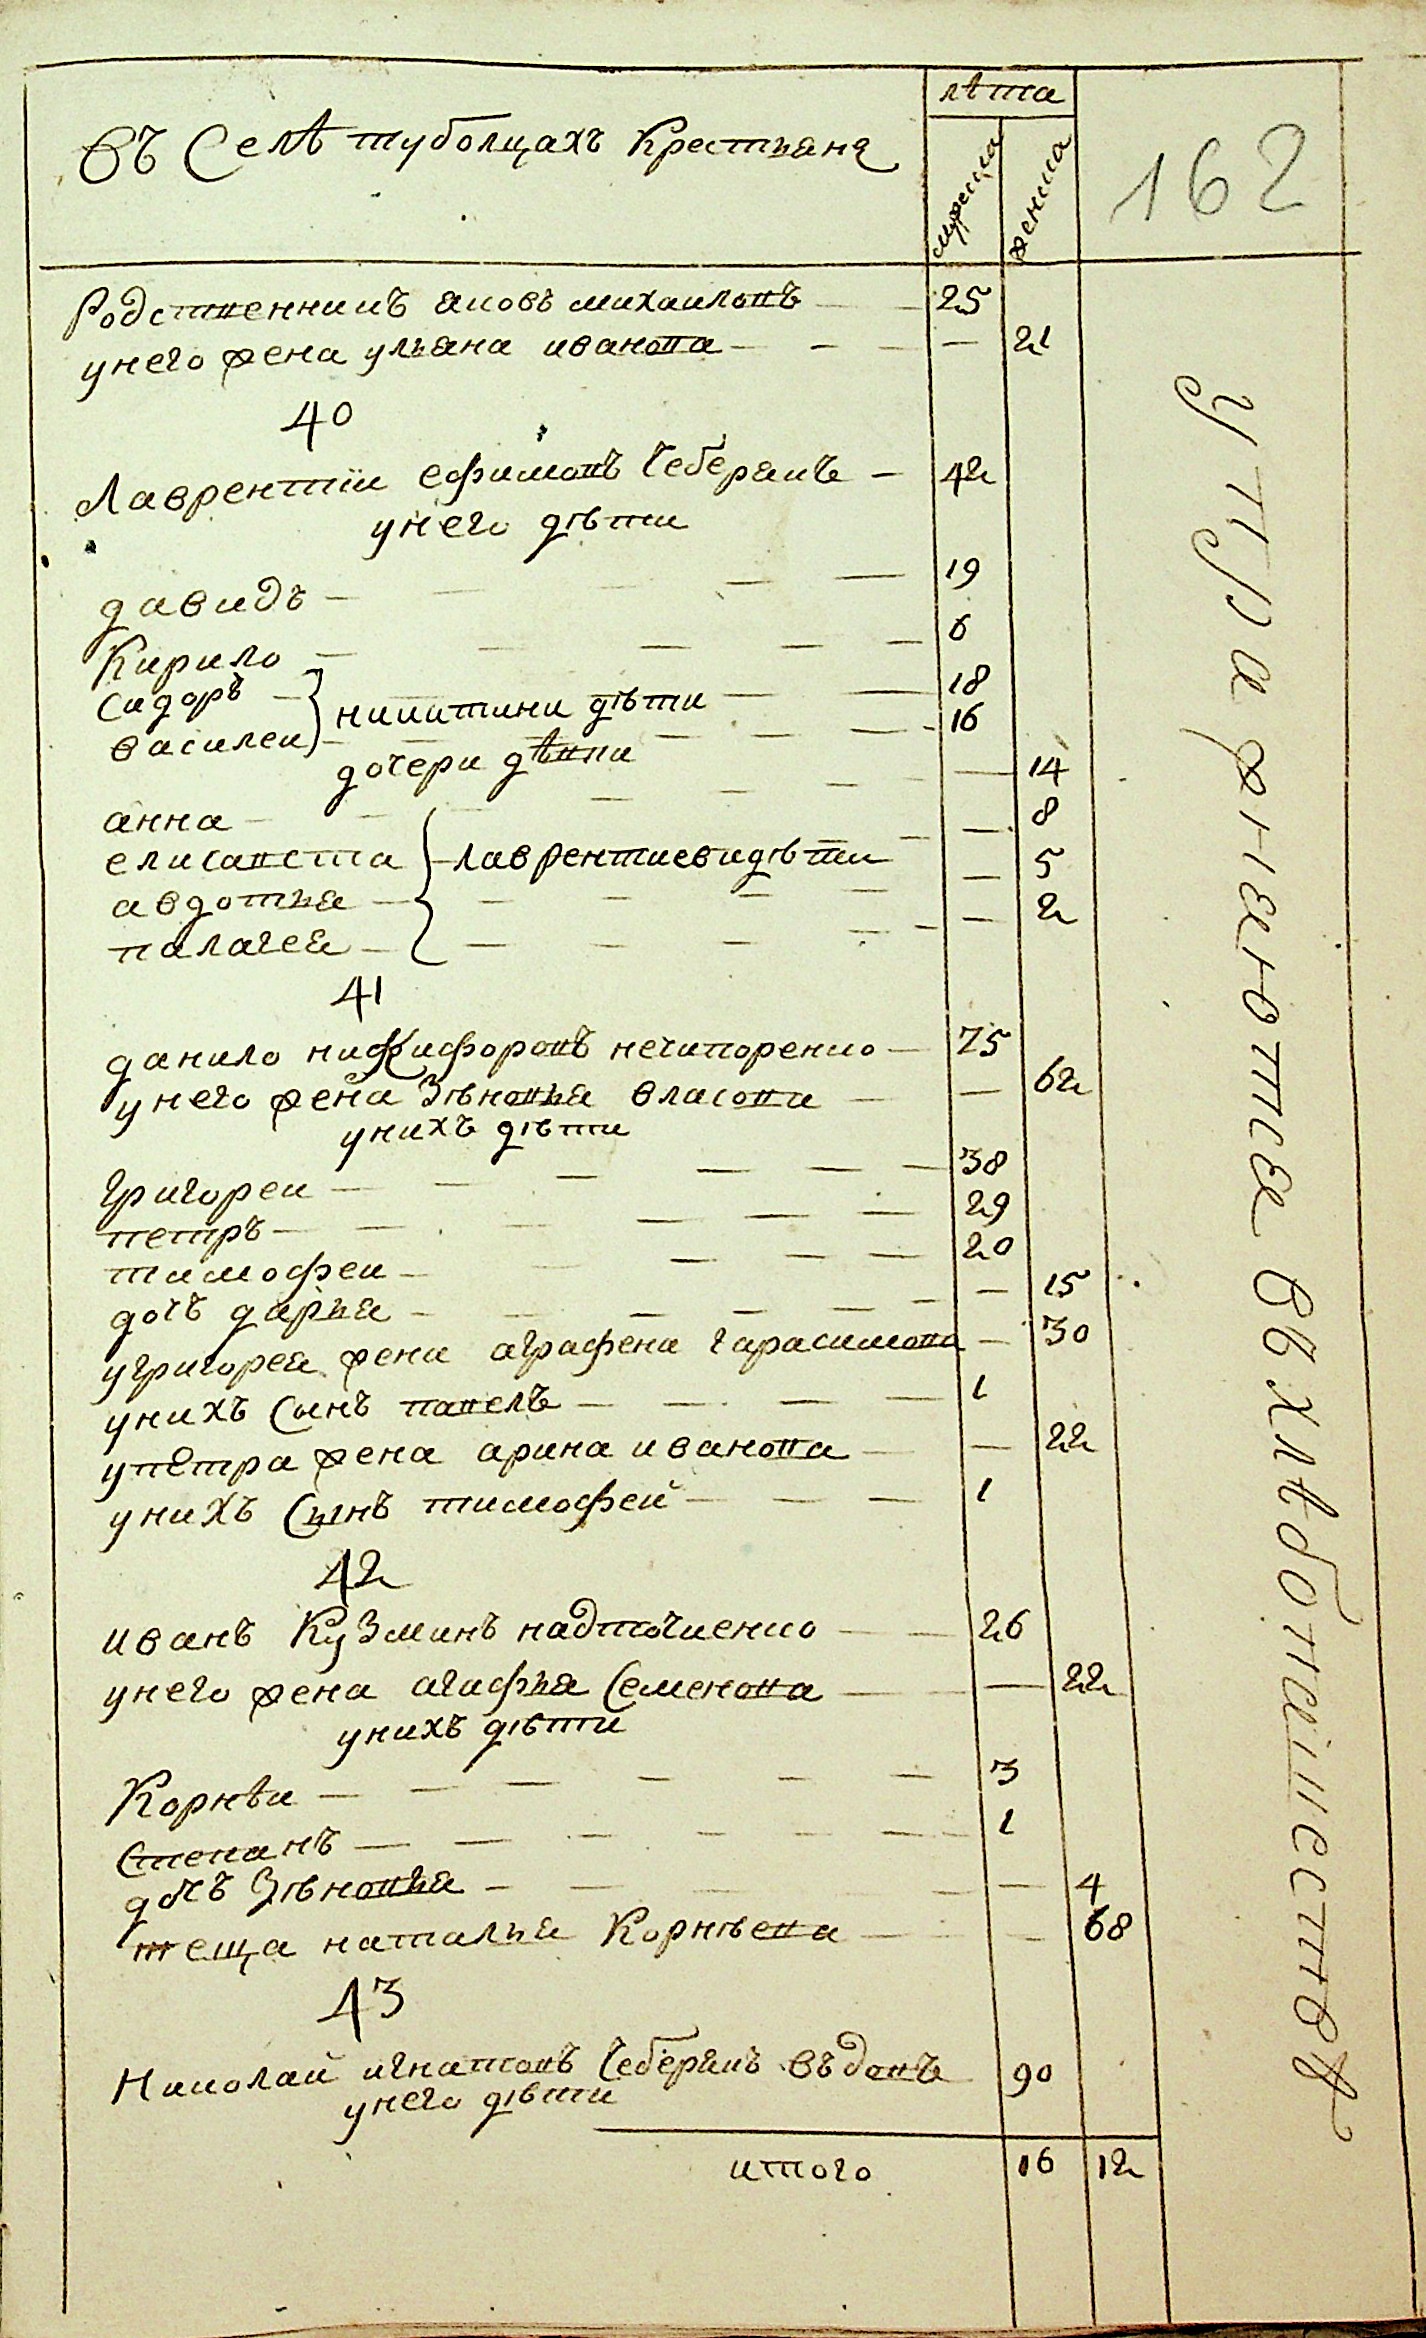 лѣта
Въ Селѣ туболцахъ Крестьяня
мужеска
женска
162
Родственникъ яковъ михаиловъ 25
унего жена ульяна иванова 21
40
Лаврентіи ефимовъ Чеберякъ 42
унего дѣти
давидъ 19
Кирило 6
сидоръ 18
никитини дѣти
василеи 16
дочери дѣвки
анна 14
елисавета 8
лаврентиеви дѣти
авдотья 5
палагея 2
41
данило никифоровъ нечипоренко 75
унего жена Зѣновья власова 62
унихъ дѣти
григореи 38
петръ 29
тимофеи 20
дочъ дарья 15
угригорея жена аграфена гарасимова 30
унихъ Сынъ павелъ 1
упетра жена арина иванова 22
унихъ Сынъ тимофей 1
42
иванъ Кузминъ надточиенко 26
унего жена агафья Семенова 22
унихъ дѣти
Корнѣи 3
Степанъ 1
дочъ Зѣновья 4
теща наталья Корнѣева 68
43
Николай игнатовъ Чеберякъ въдовъ 90
унего дѣти
итого 16 12
упражняются вхлѣбопашествѣ